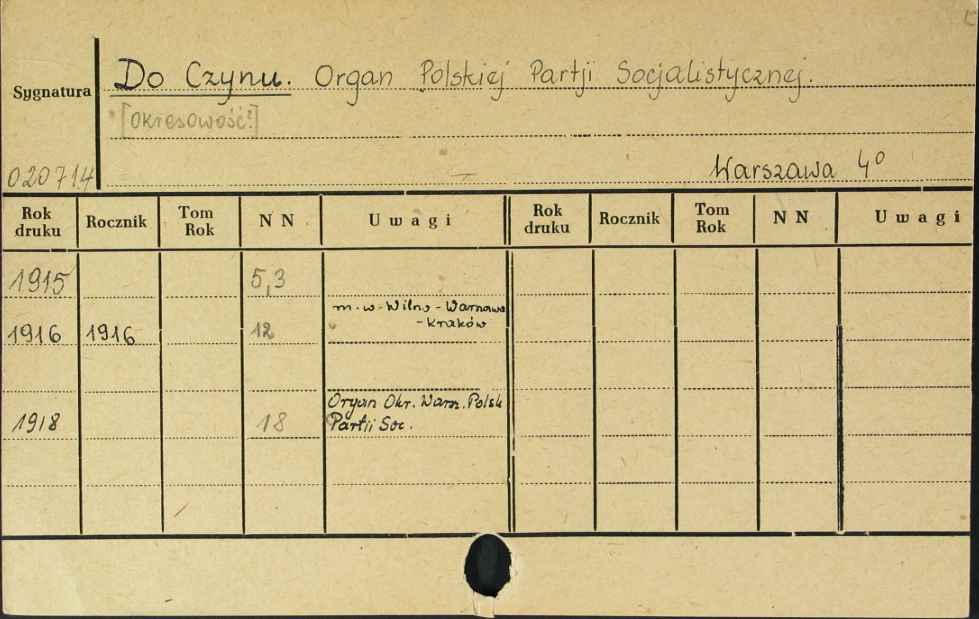 Sygnatura Do Czynu. Organ Polskiej Partji Socjalistycznej.
[okresowość?]
020714 Warszawa 4º
Rok druku Rocznik Tom Rok N N Uwagi Rok druku Rocznik Tom Rok N N Uwagi
1915 5,3
m. w. Wilno - Warszawa
- Kraków
1916 1916 12
Organ Okr. Warsz. Polsk
1918 18 Partii Soc.